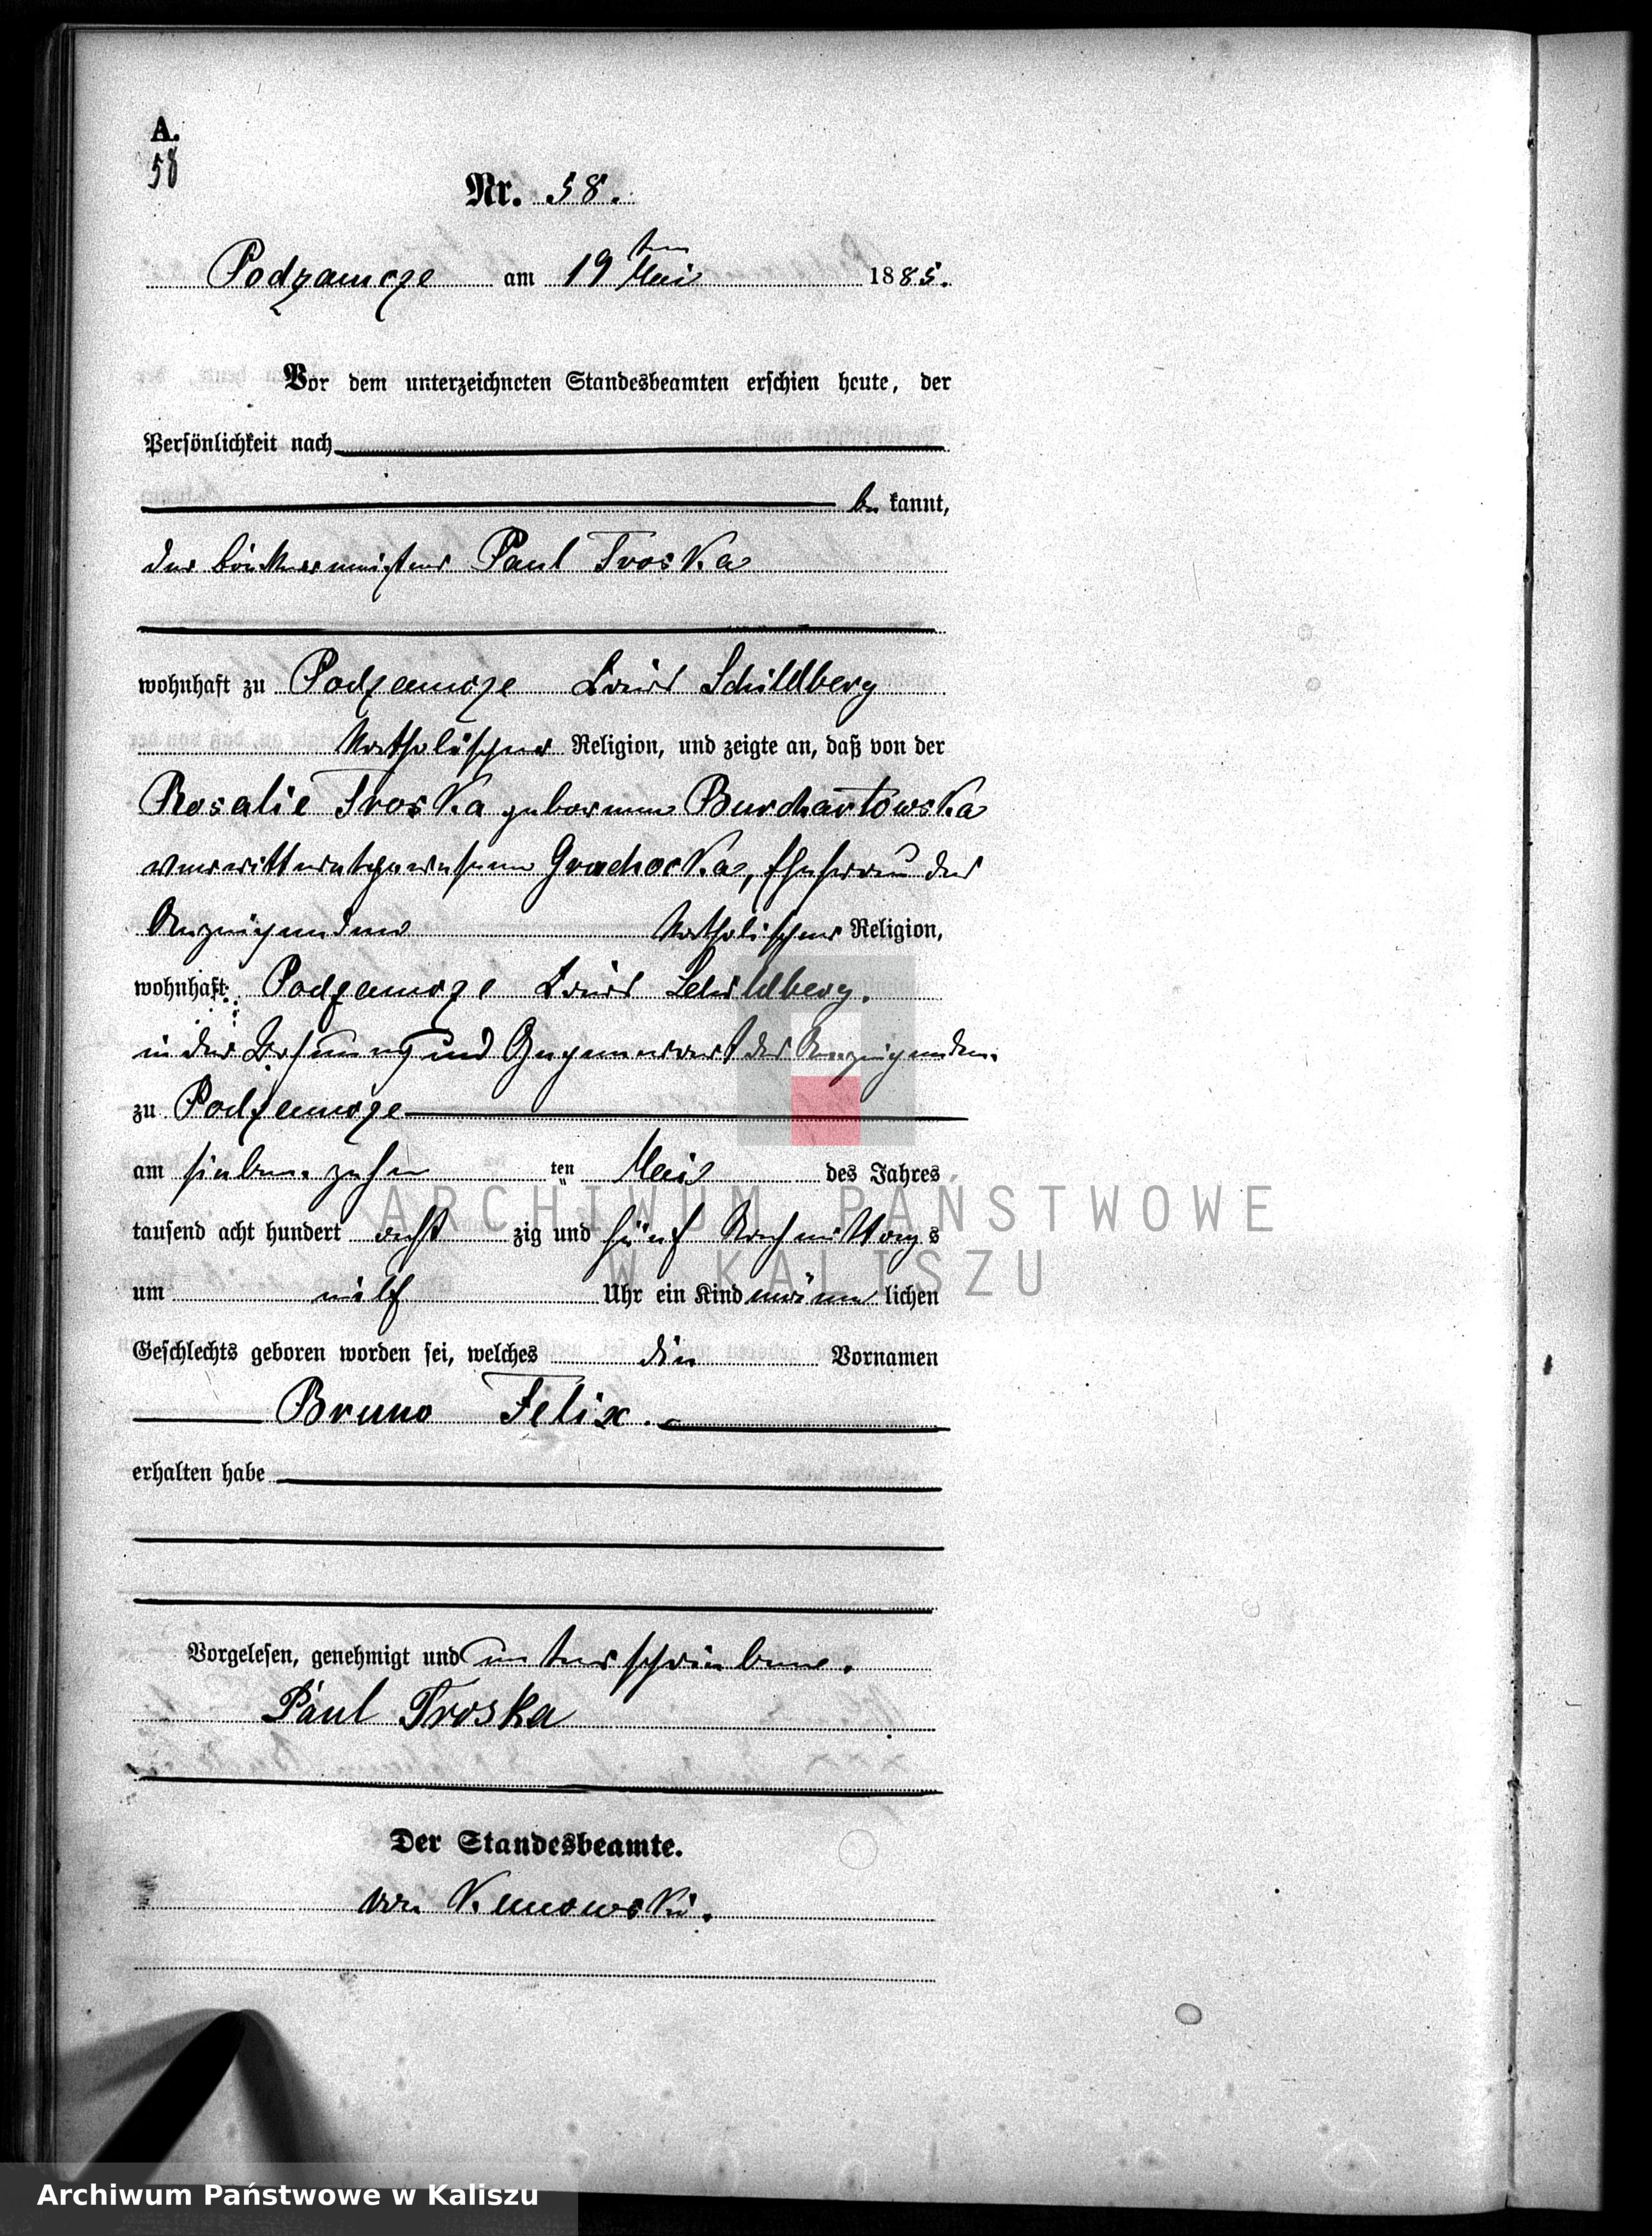 A.
58
Nr. 58.
Podzamcze am 19ten Mai 1885.
Vor dem unterzeichneten Standesbeamten erschien heute, der
Persönlichkeit nach
be kannt,
der Böttchermeister Paul Troska
wohnhaft zu Podzamcze Kreis Schildberg
katholischer Religion, und zeigte an, daß von der
Rosalie Troska geborenen Burchartowska
verwittwetgewesene Grochocka, Ehefrau des
Anzeigenden katholischer Religion,
wohnhaft: Podzamcze Kreis Schildberg.
in der Wohnung und Gegenwart des Anzeigenden.
zu Podzamcze
am siebenzehn ten Mai des Jahres
tausend acht hundert acht zig und fünf Nachmittags
um Uhr ein Kind männ lichen
Geschlechts geboren worden sei, welches die Vornamen
Bruno Felix.
erhalten habe
Vorgelesen, genehmigt und unterschrieben.
Paul Troska
Der Standesbeamte.
von
ARCHIWUM PAŃSTWOWE
W KALISZU
Archiwum Państwowe w Kaliszu